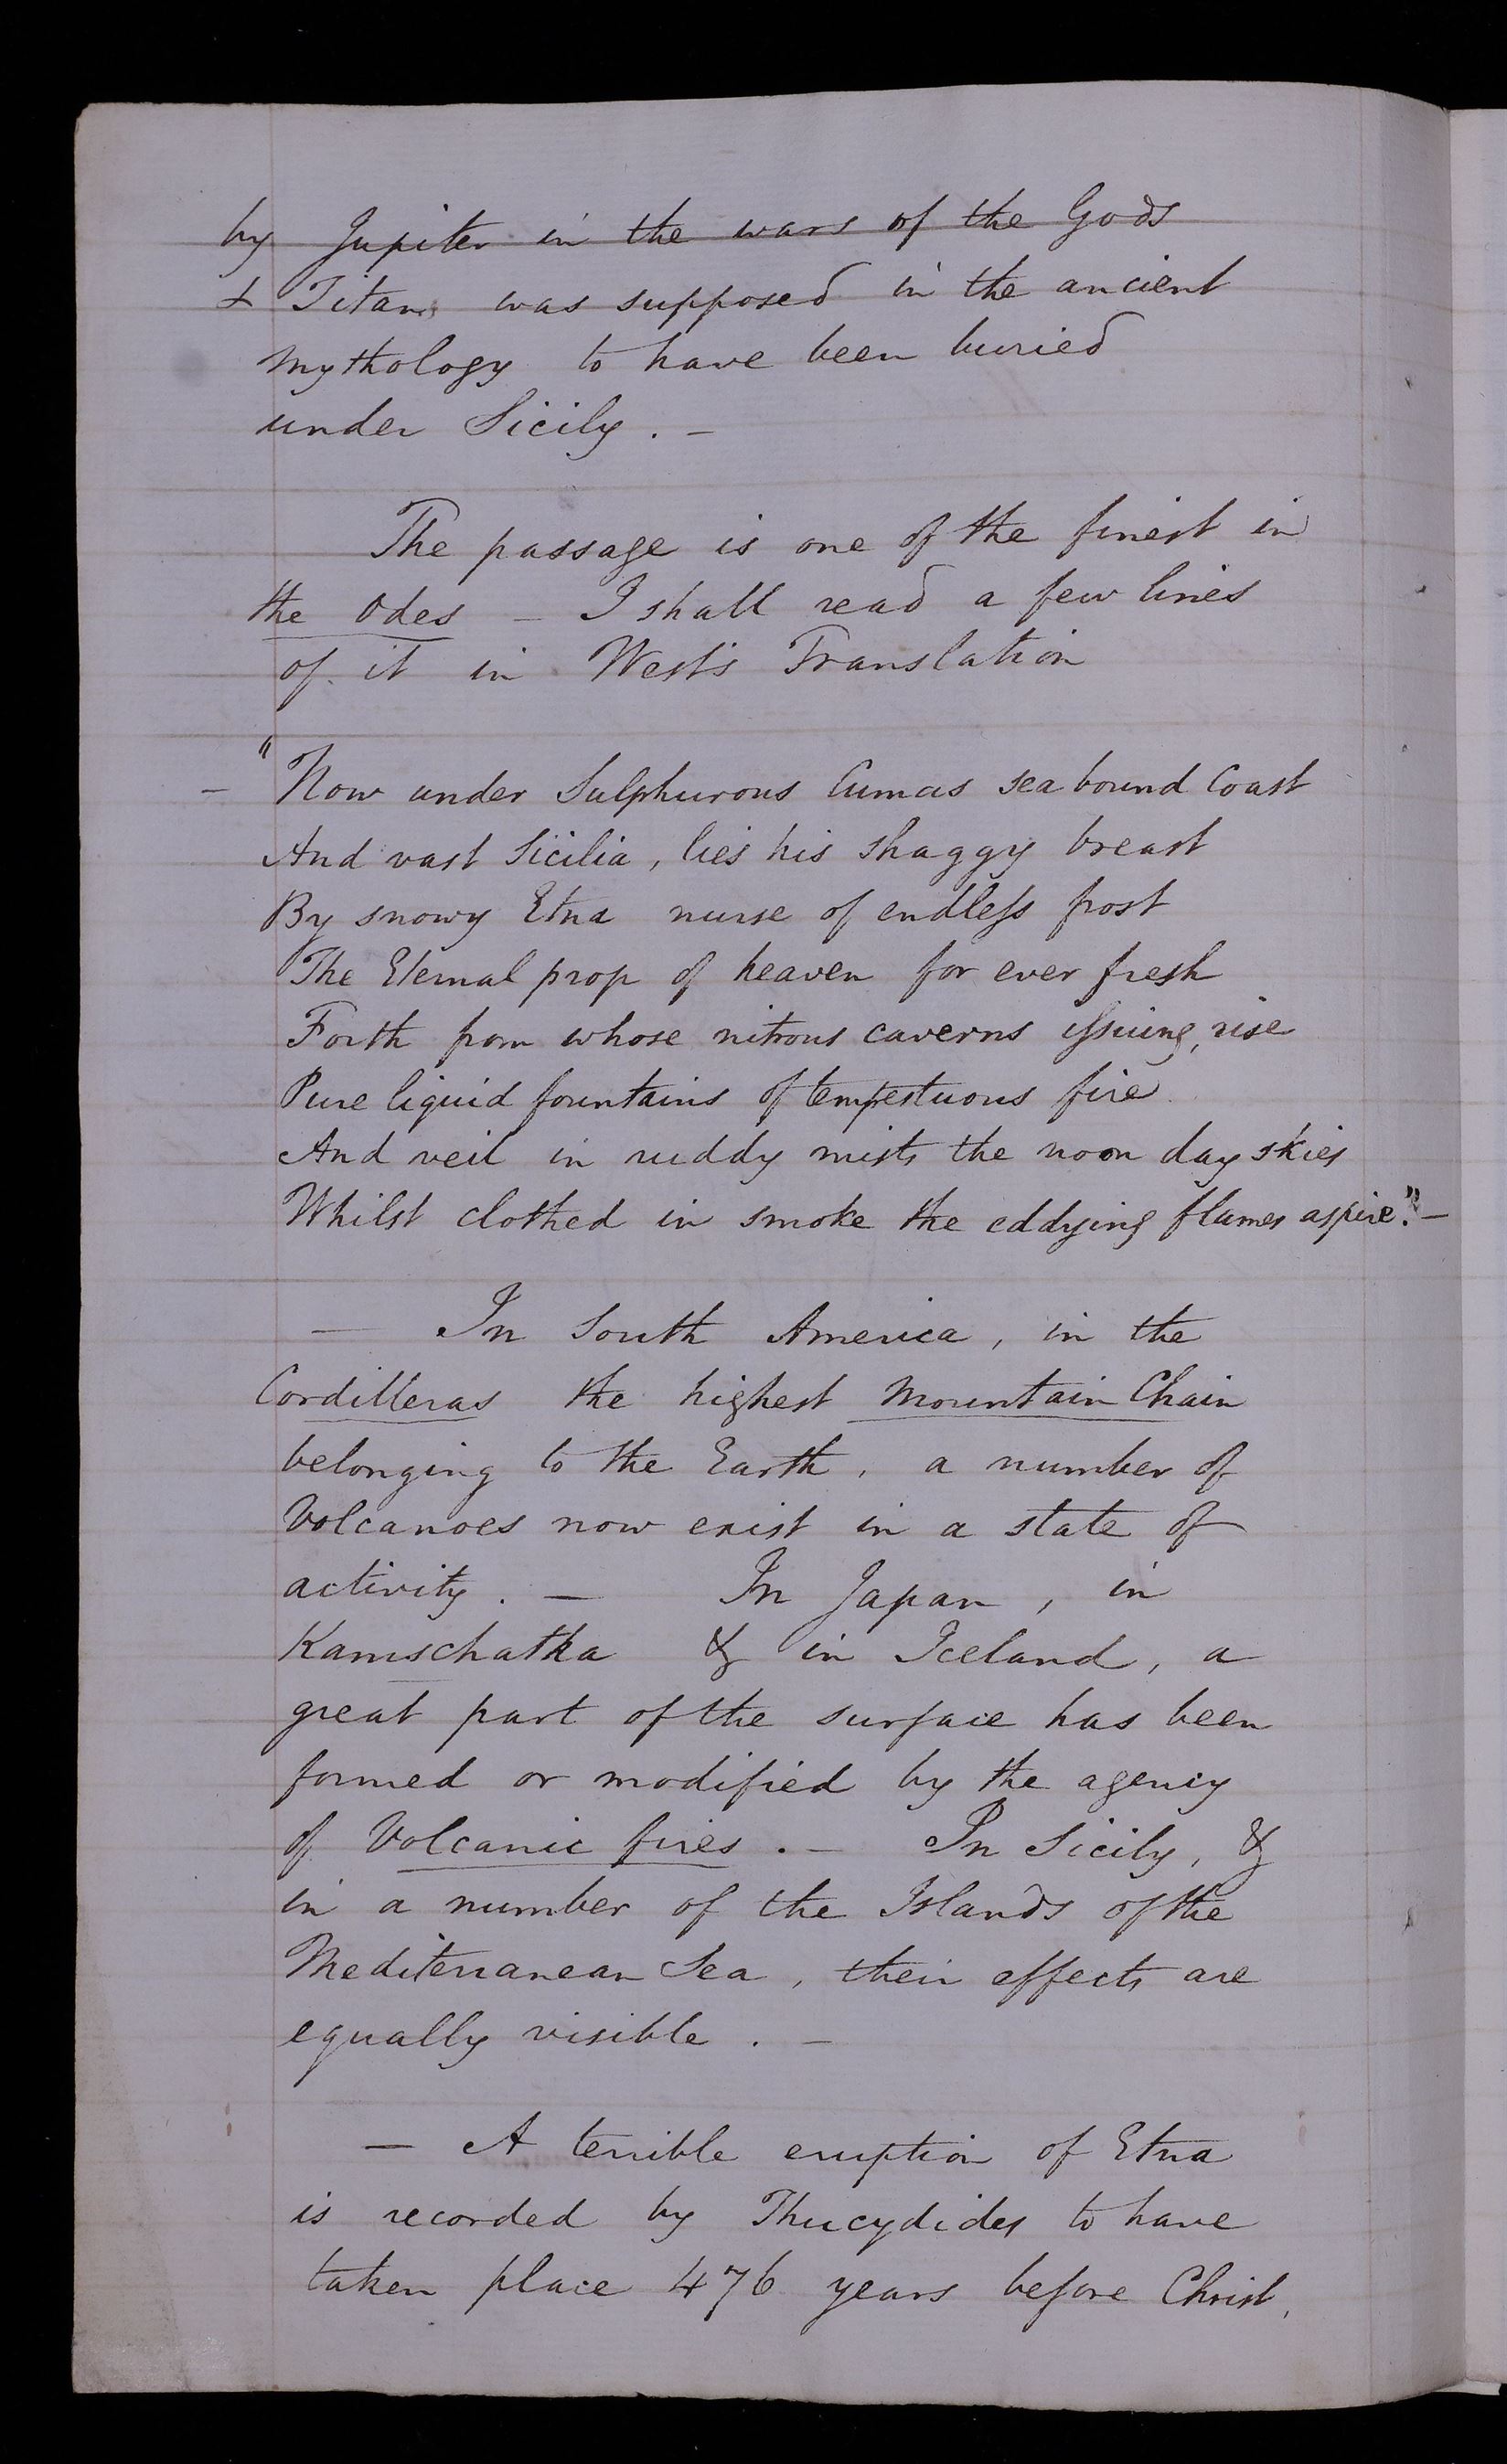 by Jupiter in the wars of the Gods
& Titans was supposed in the ancient
mythology to have been buried
under Sicily . –
The passage is one of the finest in
the Odes – I shall read a few lines
of it in West's Translation
– "Now under Sulphurous Cumas sea bound Coast
And vast Sicilia, lies his shaggy breast
By snowy Etna nurse of endless frost
The Eternal prop of heaven for ever fresh
Forth from whose nitrous caverns issuing, rise
Pure liquid fountains of tempestuous fire
And veil in ruddy mists the noon day skies
Whilst clothed in smoke the eddying flames aspire." –
– In South America, in the
Cordilleras the highest Mountain Chain
belonging to the Earth, a number of
Volcanoes now exist in a state of
activity . – In Japan, in
Kamschatka & in Iceland, a
great part of the surface has been
formed or modified by the agency
of Volcanic fires . – In Sicily, &
in a number of the Islands of the
Mediterranean Sea, their effects are
equally visible . –
– A terrible eruption of Etna
is recorded by Thucydides to have
taken place 476 years before Christ,